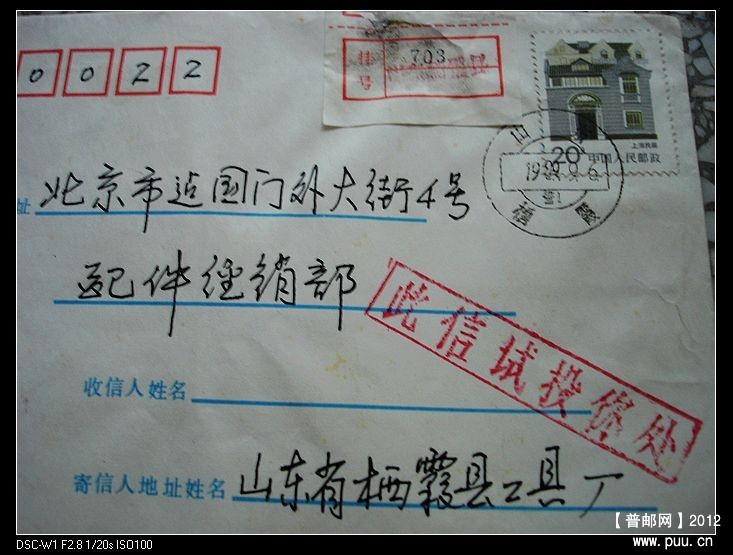 0 0 2 2
挂号 703
上海民居
20 中国人民邮政
山
栖霞
址 北京市建国门外大街4号
配件经销部
此信试投保处
收信人姓名
寄信人地址姓名 山东省栖霞县工具厂
【普邮网】2012
www.puu.cn
DSC-W1 F2.8 1/20s ISO100